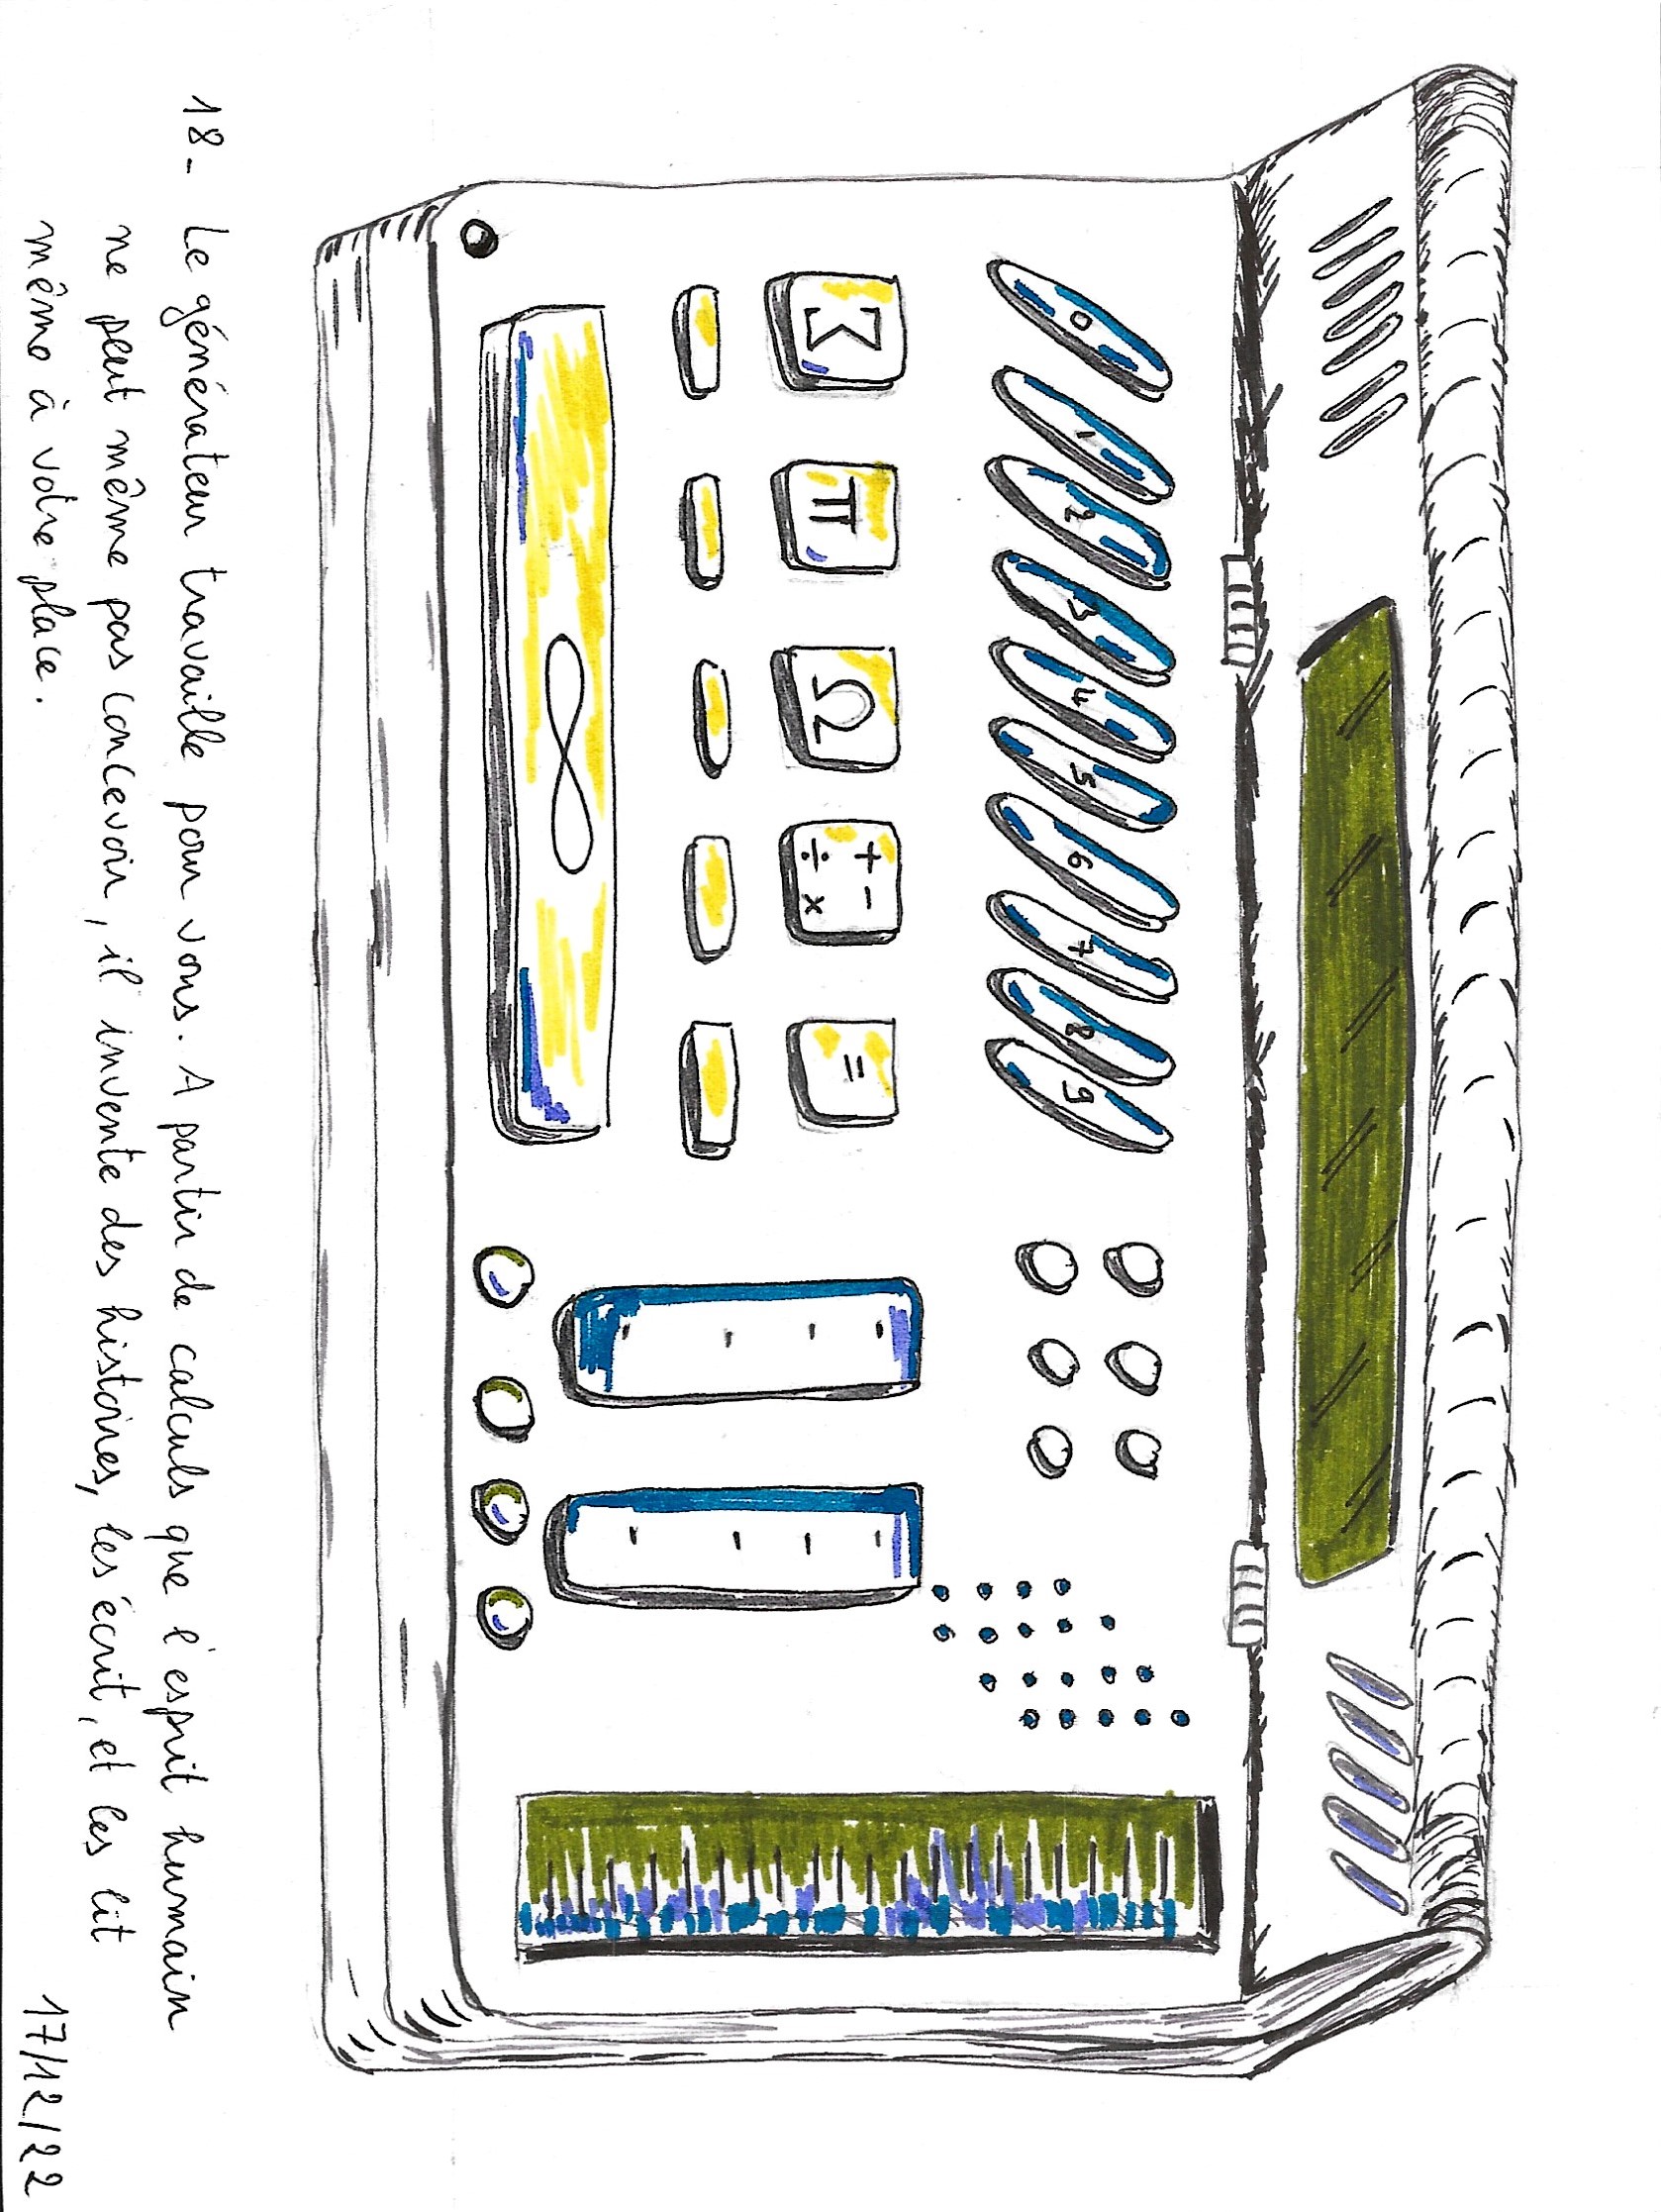 0 1 2 3 4 5 6 7 8 9
Σ π Ω + - ÷ x =
∞
18- Le générateur travaille pour vous. A partir de calculs que l'esprit humain
ne peut même pas concevoir, il invente des histoires, les écrit, et les lit
même à votre place.
17/12/22